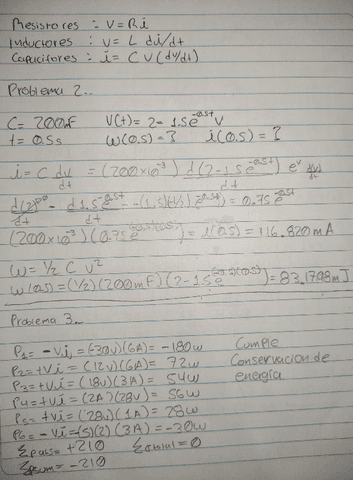 Resistores : V=Ri
Inductores : v= L di/dt
Capacitores : i= C V (dv/dt)
Problema 2..
C= 200mF V(t)= 2-1.5e^-0.5t V
t= 0.5s w(0.5)=? i(0.5)=?
i= C dv/dt = (200x10^-3) d(2-1.5e^-0.5t)/dt e^v dv/dt
d(2)/dt - d1.5e^-0.5t/dt = -(1.5)(-1/2)e^-0.5t = 0.75e^-0.5t
(200x10^-3)(0.75e^(-0.5)(0.5))= i(0.5)= 116.820mA
W= 1/2 C V^2
w(0.5)= (1/2)(200mF)(2-1.5e^(-0.5)(0.5))= 83.1798mJ
Problema 3..
P1= -Vi, = (-30v)(6A)= -180w Cumple
P2= +Vi= (12v)(6A)= 72w Conservacion de
P3= +Vi= (18v)(3A)= 54w energía
P4= +Vi= (2A)(28v)= 56w
P5= +Vi= (28v)(1A)= 28w
P6= -Vi= (5)(2)(3A)= -30w
= +210 =0
= -210